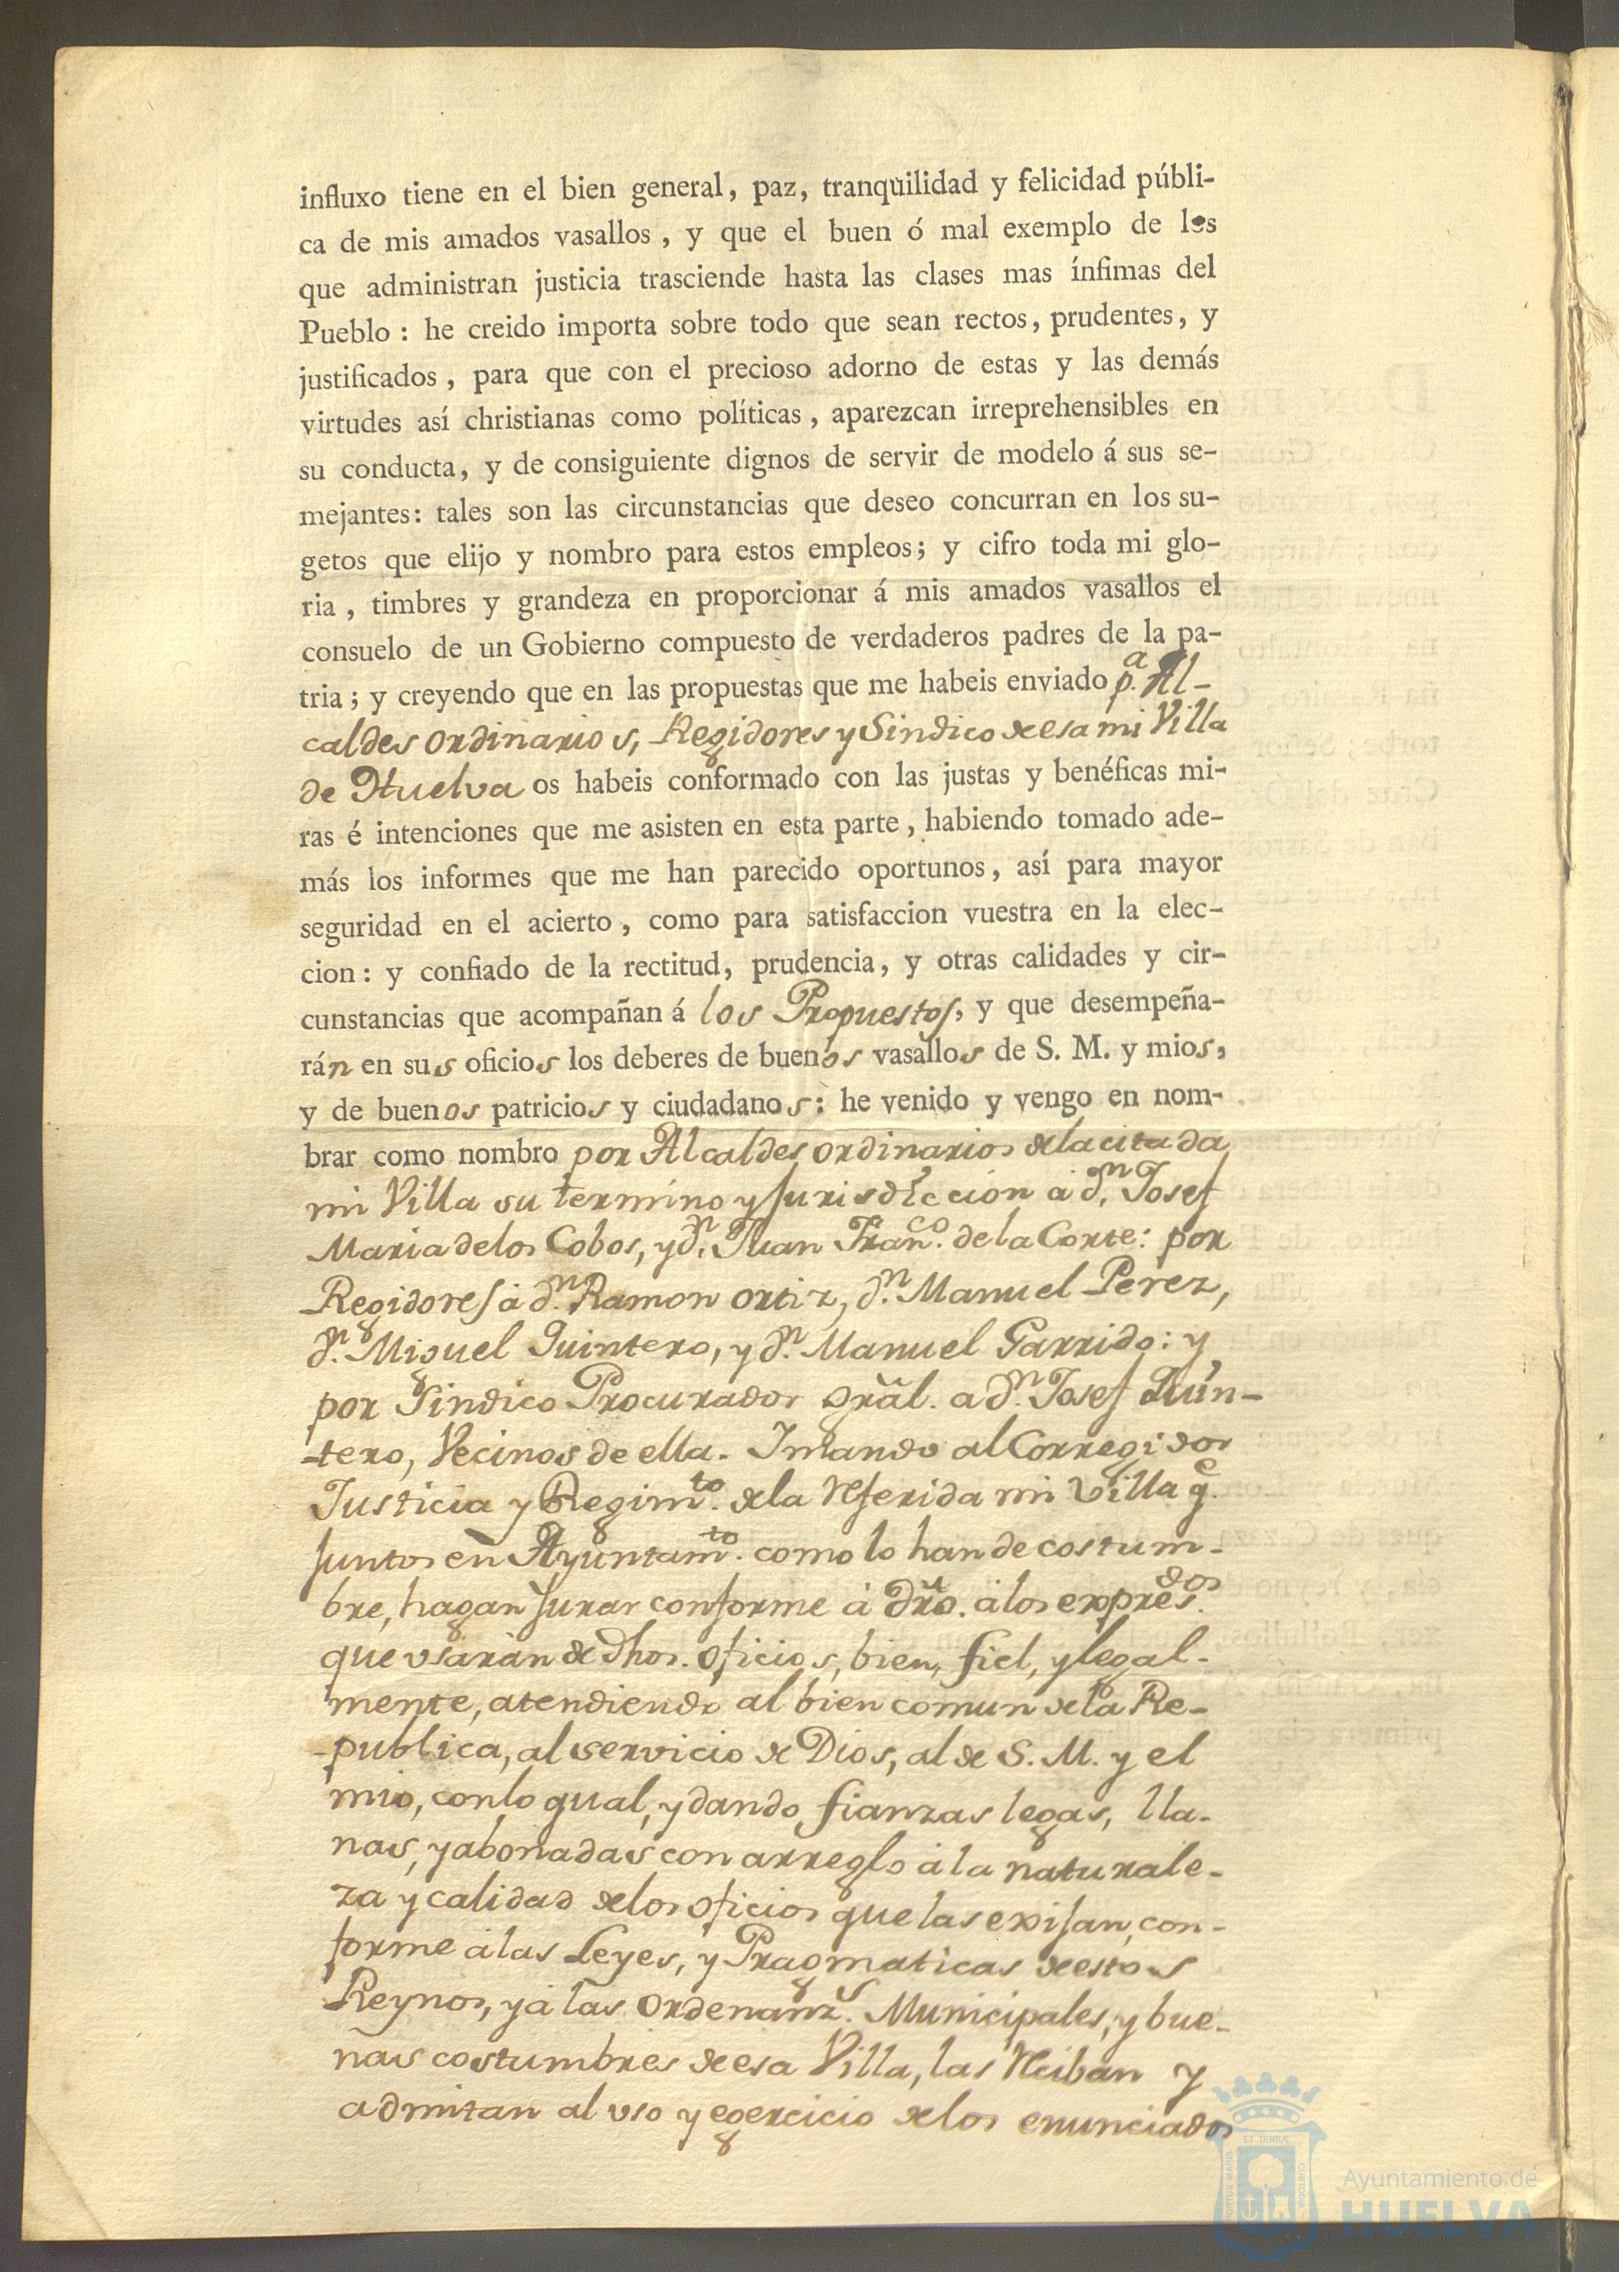 influxo tiene en el bien general, paz, tranqüilidad y felicidad públi-
ca de mis amados vasallos, y que el buen ó mal exemplo de los
que administran justicia trasciende hasta las clases mas ínfimas del
Pueblo: he creido importa sobre todo que sean rectos, prudentes, y
justificados, para que con el precioso adorno de estas y las demás
virtudes así christianas como políticas, aparezcan irreprehensibles en
su conducta, y de consiguiente dignos de servir de modelo á sus se-
mejantes: tales son las circunstancias que deseo concurran en los su-
getos que elijo y nombro para estos empleos; y cifro toda mi glo-
ria, timbres y grandeza en proporcionar á mis amados vasallos el
consuelo de un Gobierno compuesto de verdaderos padres de la pa-
tria; y creyendo que en las propuestas que me habeis enviado p.a Al-
caldes ordinarios, Regidores y Sindico de esa mi Villa
de Huelva os habeis conformado con las justas y benéficas mi-
ras é intenciones que me asisten en esta parte, habiendo tomado ade-
más los informes que me han parecido oportunos, así para mayor
seguridad en el acierto, como para satisfaccion vuestra en la elec-
cion: y confiado de la rectitud, prudencia, y otras calidades y cir-
cunstancias que acompañan á los Propuestos, y que desempeña-
rán en sus oficios los deberes de buenos vasallos de S. M. y mios,
y de buenos patricios y ciudadanos: he venido y vengo en nom-
brar como nombro por Alcaldes ordinarios de la citada
mi Villa su termino y Jurisdiccion a d.n Josef
Maria de los Cobos, y d.n Juan Fran.co de la Corte: por
Regidores á d.n Ramon Ortiz, d.n Manuel Perez,
d.n Miguel Quintero, y d.n Manuel Garrido: y
por Sindico Procurador Grãl. a d.n Josef Quin-
-tero, Vecinos de ella. Y mando al Corregidor
Justicia y Regim.to de la referida mi Villa q.e
juntos en Ayuntam.to como lo han de costum-
bre, hagan jurar conforme á dr̃o. á los expres.dos
que usarán de dhos. oficios, bien, fiel, y legal-
mente, atendiendo al bien comun de la Re-
-publica, al servicio de Dios, al de S. M. y el
mio, con lo qual, y dando fianzas legas, lla-
nas, y abonadas con arreglo á la naturale-
za y calidad de los oficios que las exijan, con-
forme á las Leyes, y Pragmaticas de estos
Reynos, y á las Ordenanz.s Municipales, y bue-
nas costumbres de esa Villa, las reciban y
admitan al uso y egercicio de los enunciados
ET TERRÆ
PORTUS MARIS
CUSTODIA
Ayuntamiento de
HUELVA